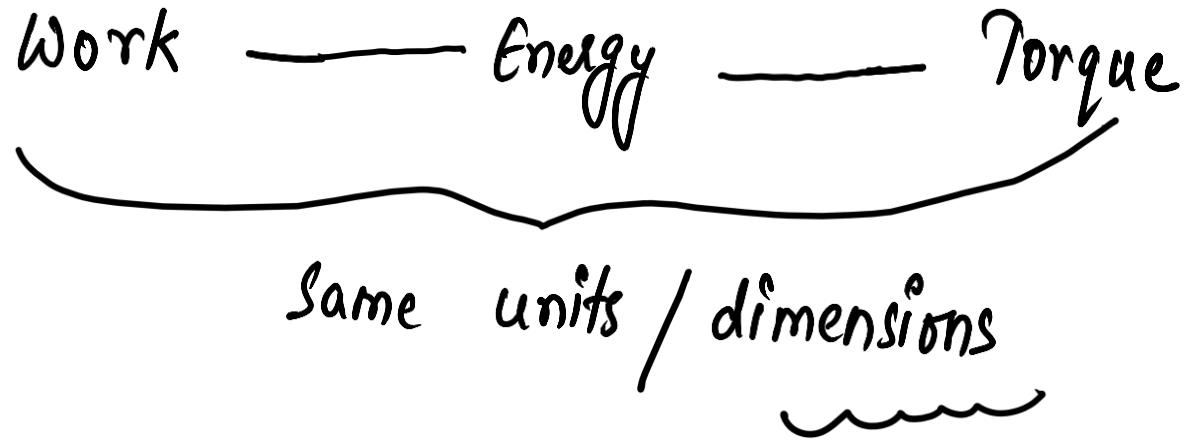 Work — Energy — Torque
Same units / dimensions